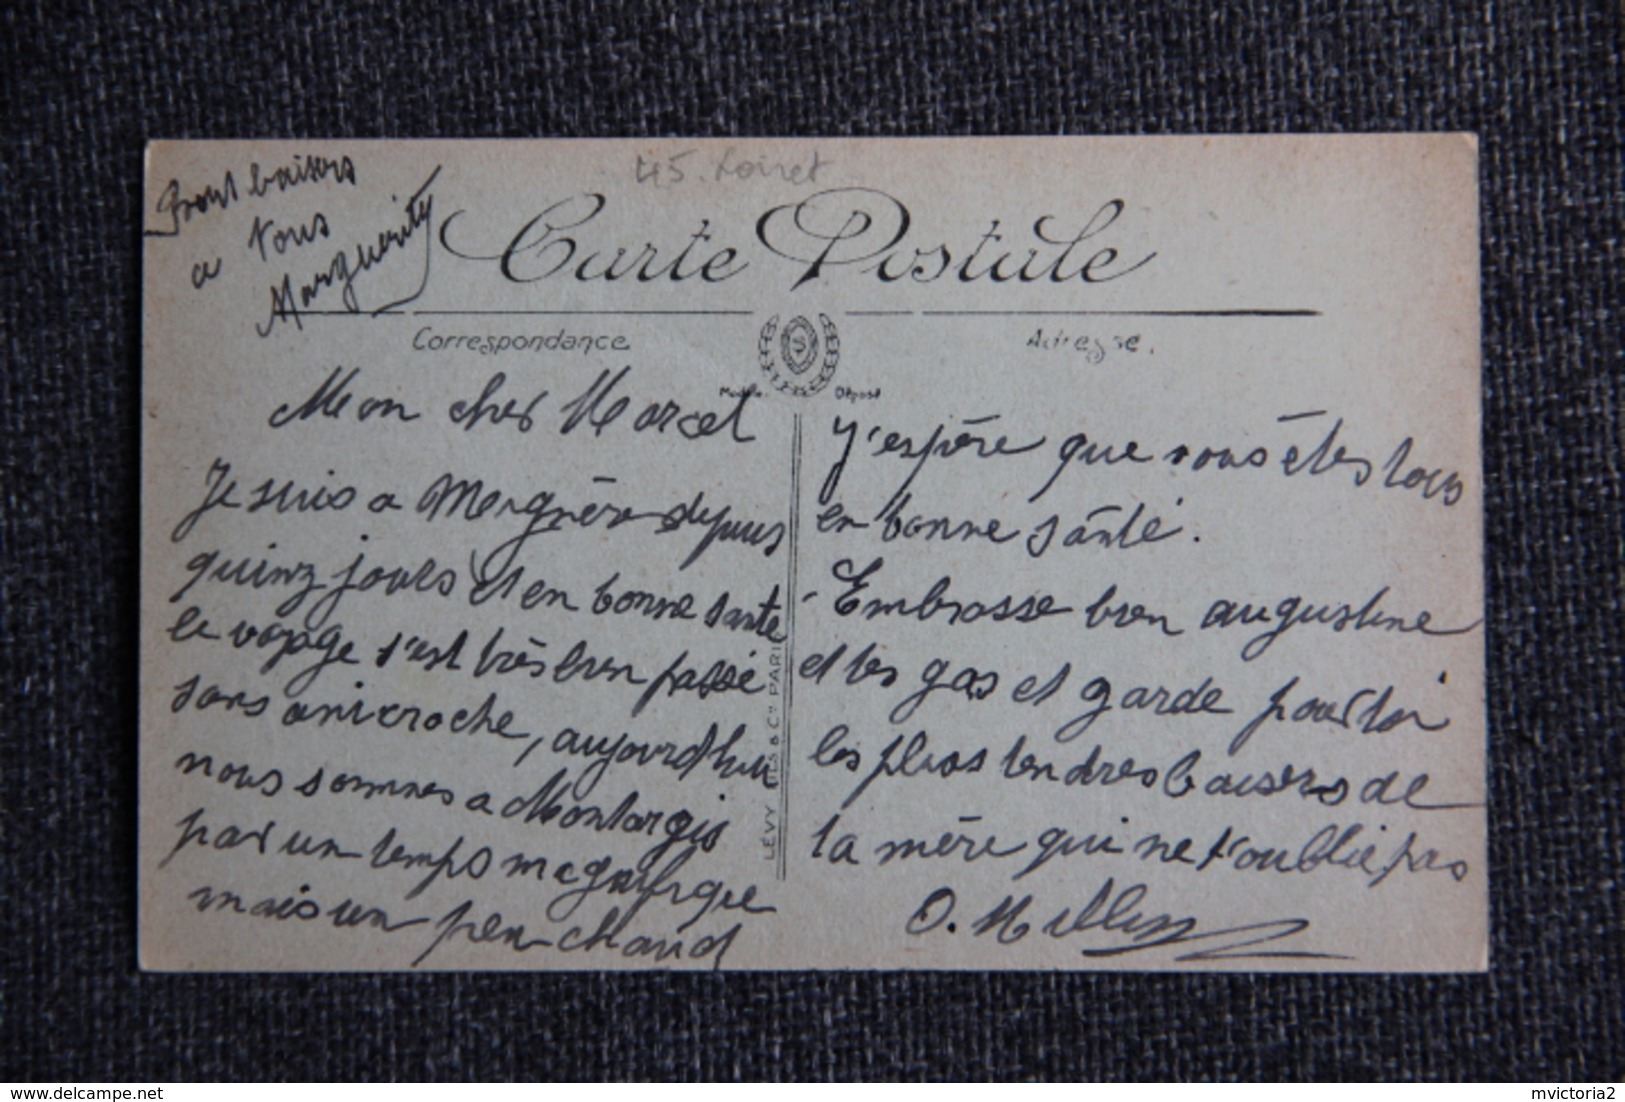 45. Loiret
baisers
a vous
Marguerity
Carte Postale
Correspondance
Adresse.
Modèle Déposé
Mon cher Marcel
Je suis a depuis
quinz jours et en bonne sante
le voyage s'est très bien passé
sans anicroche, aujourd'hui
nous sommes a Montargis
par un temps magnifique
mais un peu chaud
LEVY FILS & Cie PARIS
J'espère que vous êtes tous
en bonne santé.
Embrasse bien augustine
et les gas et garde pour toi
les plus tendres baisers de
ta mère qui ne t'oublie pas
O.
delcampe.net
mvictoria2